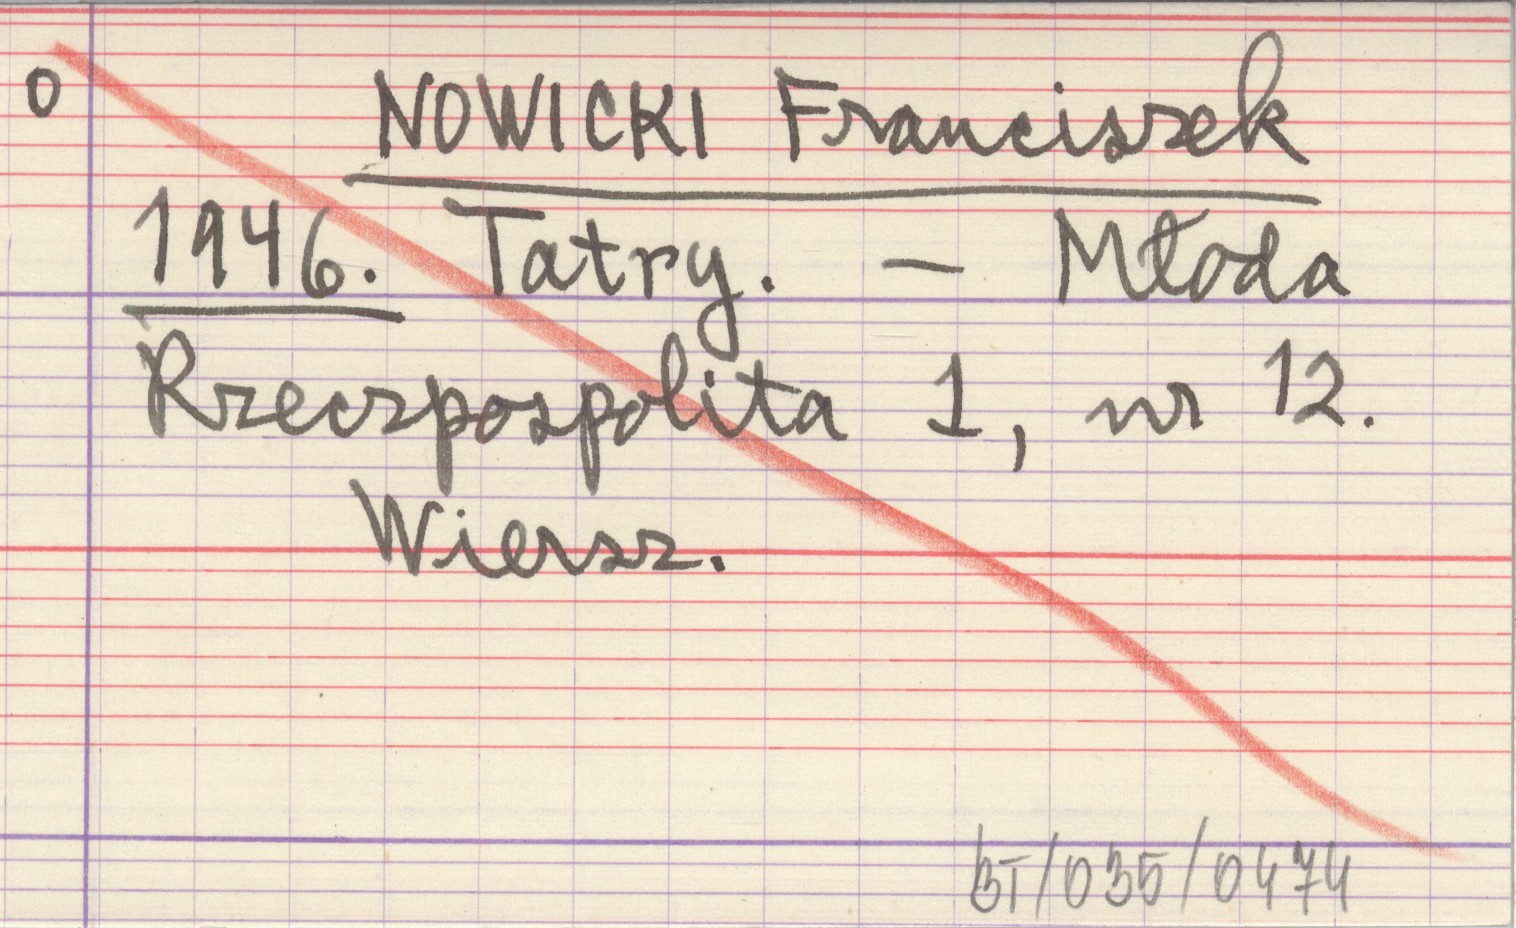 0
NOWICKI Franciszek
1946. Tatry. — Młoda
Rzeczpospolita 1, nr 12.
Wiersz.
BT/035/0474